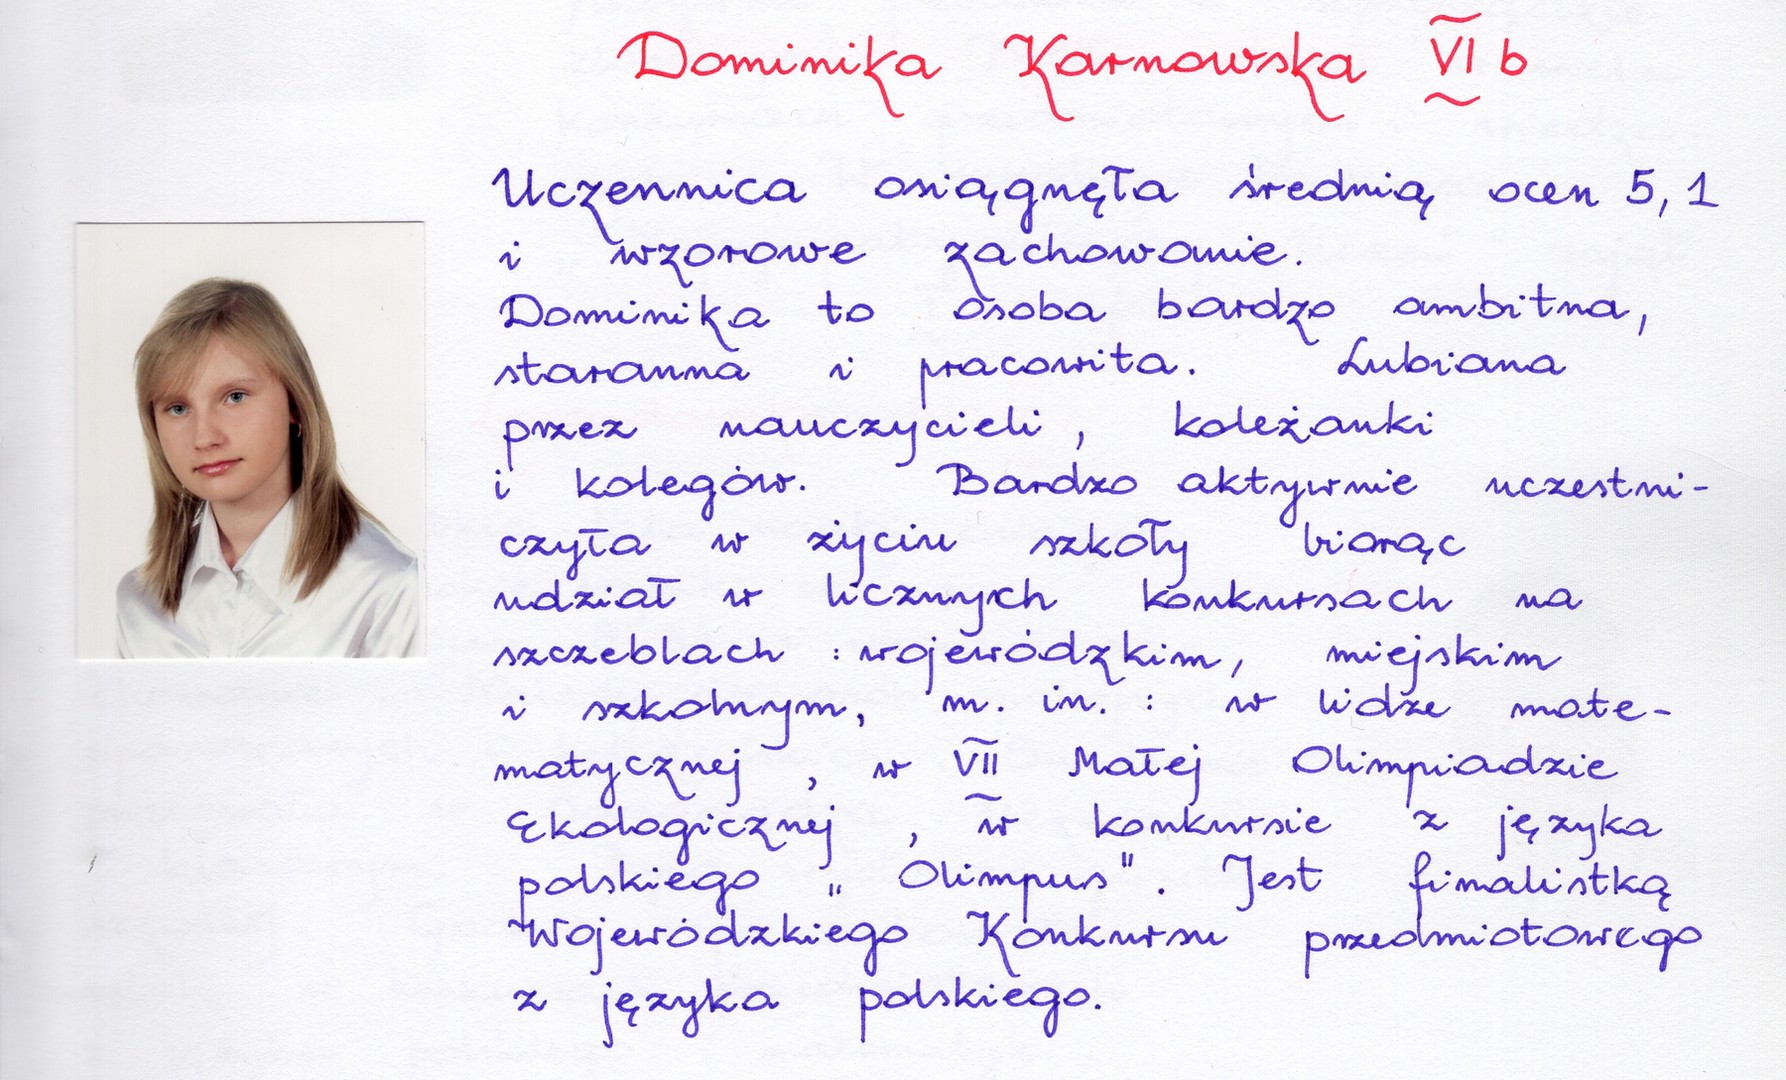 Dominika Karnowska VI b
Uczennica osiągnęła średnią ocen 5,1
i wzorowe zachowanie.
Dominika to osoba bardzo ambitna,
staranna i pracowita. Lubiana
przez nauczycieli, koleżanki
i kolegów. Bardzo aktywnie uczestni-
czyła w życiu szkoły biorąc
udział w licznych konkursach na
szczeblach : wojewódzkim, miejskim
i szkolnym, m. in. : w lidze mate-
matycznej, w VII Małej Olimpiadzie
Ekologicznej, w konkursie z języka
polskiego „Olimpus". Jest finalistką
Wojewódzkiego Konkursu przedmiotowego
z języka polskiego.